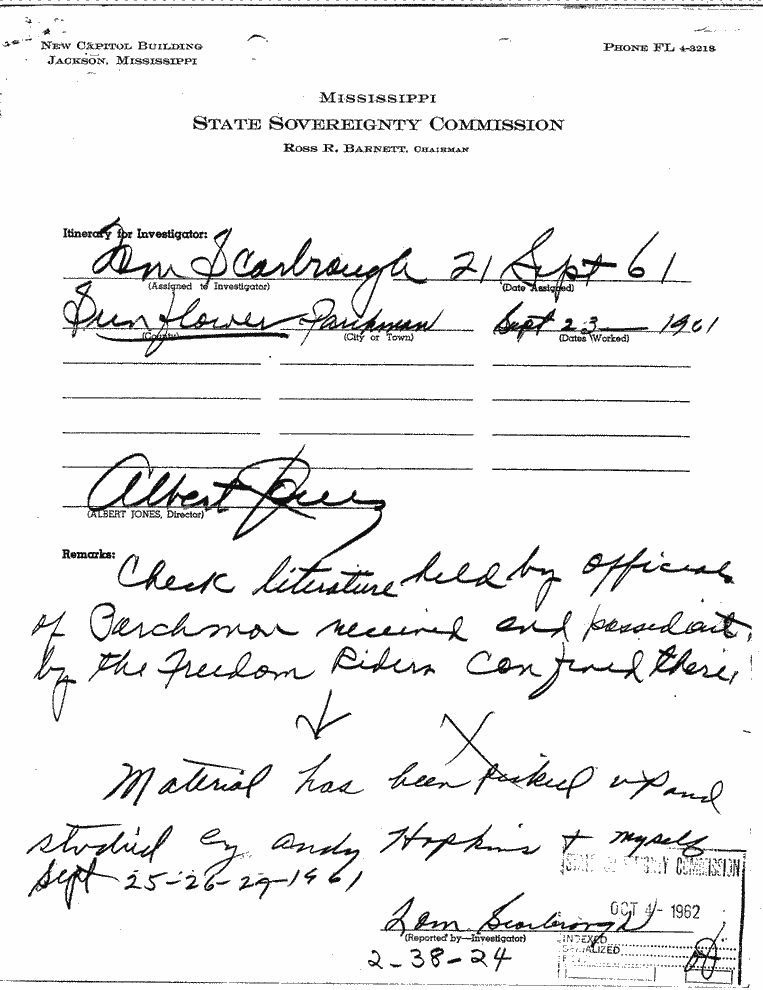 NEW CAPITOL BUILDING
JACKSON, MISSISSIPPI
PHONE FL 4-3218
MISSISSIPPI
STATE SOVEREIGNTY COMMISSION
ROSS R. BARNETT, CHAIRMAN
Itinerary for Investigator:
Tom Scarbrough 21 Sept 61
(Assigned to Investigator) (Date Assigned)
Sunflower Parchman Sept 23 1961
(County) (City or Town) (Dates Worked)
Albert Jones
(ALBERT JONES, Director)
Remarks:
Check literature held by officials
of Parchman received and passed out
by the Freedom Riders confined there.
Material has been picked up and
studied by Andy Hopkins + myself
Sept 25-26-27-1961
STATE SOVEREIGNTY COMMISSION
OCT 4 - 1962
Tom Scarbrough
(Reported by—Investigator)
INDEXED
SERIALIZED
2-38-24